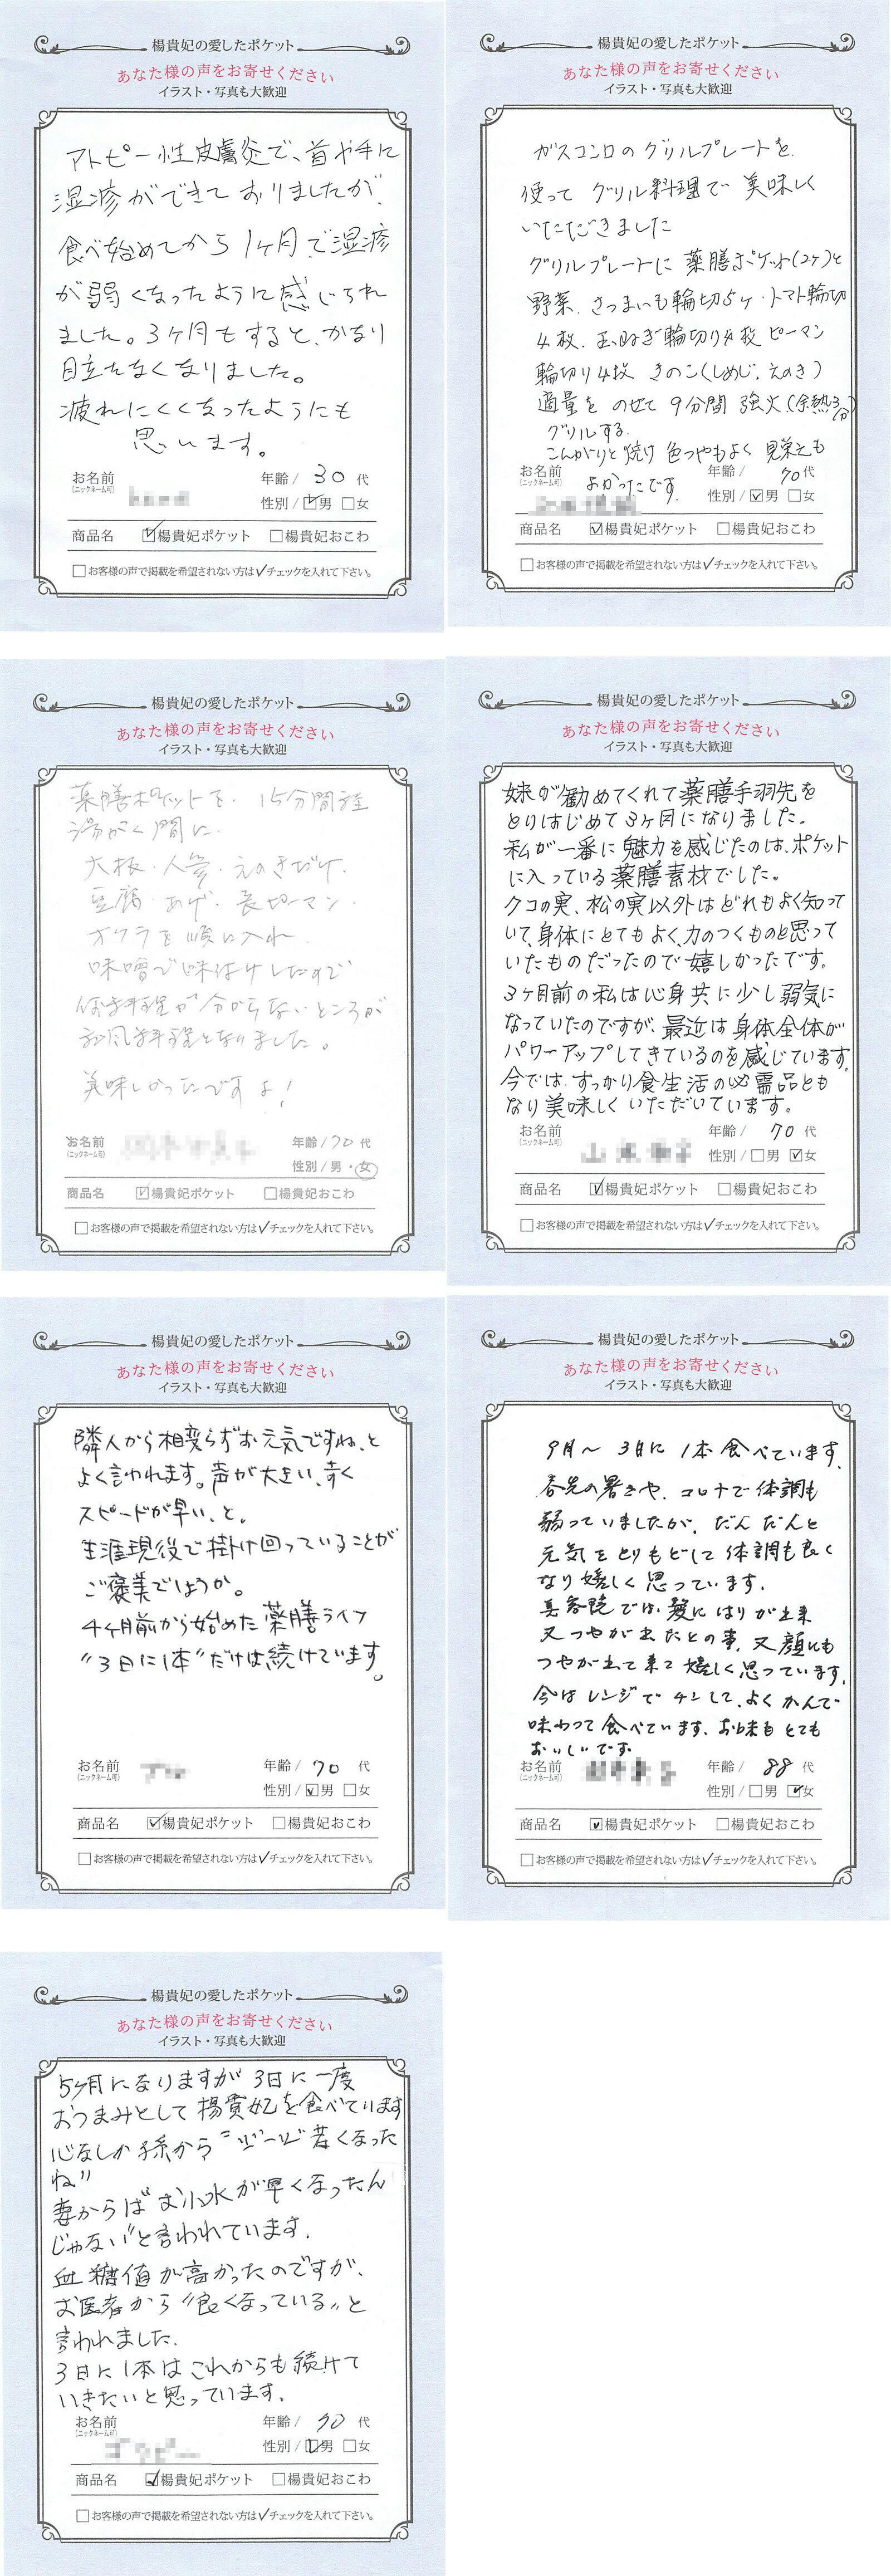 楊貴妃の愛したポケット
あなた様の声をお寄せください
イラスト・写真も大歓迎
アトピー性皮膚炎で、首や手に
湿疹ができておりましたが、
食べ始めてから1ヶ月で湿疹
が弱くなったように感じられ
ました。3ヶ月もすると、かなり
目立たなくなりました。
疲れにくくなったようにも
思います。
お名前
(ニックネーム可)
年齢/ 30 代
性別/☑男 □女
商品名 ☑楊貴妃ポケット □楊貴妃おこわ
□お客様の声で掲載を希望されない方は✓チェックを入れて下さい。
楊貴妃の愛したポケット
あなた様の声をお寄せください
イラスト・写真も大歓迎
ガスコンロのグリルプレートを
使って グリル料理で 美味しく
いただきました
グリルプレートに 薬膳ポケット(2ケ)と
野菜、さつまいも輪切5ケ・トマト輪切
4枚、玉ねぎ輪切り4枚 ピーマン
輪切り4枚 きのこ(しめじ、えのき)
適量を のせて 9分間 強火(余熱3分)
グリルする。
こんがりと焼け 色つやもよく 見栄えも
よかったです。
お名前
(ニックネーム可)
年齢/ 70代
性別/☑男 □女
商品名 ☑楊貴妃ポケット □楊貴妃おこわ
□お客様の声で掲載を希望されない方は✓チェックを入れて下さい。
楊貴妃の愛したポケット
あなた様の声をお寄せください
イラスト・写真も大歓迎
薬膳ポケットを、15分間
間に
大根・人参・えのきだけ、
豆腐・あげ・長ピーマン・
オクラを順に入れ
味噌で味付けしたので
料理が分からないところが
和風料理となりました。
美味しかったですよ!
お名前
(ニックネーム可)
年齢/70 代
性別/男・女
商品名 ☑楊貴妃ポケット □楊貴妃おこわ
□お客様の声で掲載を希望されない方は✓チェックを入れて下さい。
楊貴妃の愛したポケット
あなた様の声をお寄せください
イラスト・写真も大歓迎
妹が勧めてくれて薬膳手羽先を
とりはじめて3ヶ月になりました。
私が一番に魅力を感じたのは、ポケット
に入っている薬膳素材でした。
クコの実、松の実以外はどれもよく知って
いて、身体にとてもよく、力のつくものと思って
いたものだったので嬉しかったです。
3ヶ月前の私は心身共に少し弱気に
なっていたのですが、最近は身体全体が
パワーアップしてきているのを感じています。
今では、すっかり食生活の必需品とも
なり美味しくいただいています。
お名前
(ニックネーム可)
年齢/ 70 代
性別/□男 ☑女
商品名 ☑楊貴妃ポケット □楊貴妃おこわ
□お客様の声で掲載を希望されない方は✓チェックを入れて下さい。
楊貴妃の愛したポケット
あなた様の声をお寄せください
イラスト・写真も大歓迎
隣人から相変らずお元気ですね、と
よく言われます。声が大きい、歩く
スピードが早い、と。
生涯現役で掛け回っていることが
ご褒美でしょうか。
4ヶ月前から始めた薬膳ライフ
"3日に1本"だけは続けています。
お名前
(ニックネーム可)
年齢/ 70 代
性別/☑男 □女
商品名 ☑楊貴妃ポケット □楊貴妃おこわ
□お客様の声で掲載を希望されない方は✓チェックを入れて下さい。
楊貴妃の愛したポケット
あなた様の声をお寄せください
イラスト・写真も大歓迎
9月〜 3日に 1本 食べています。
春先の暑さや、コロナで体調も
弱っていましたが、だんだんと
元気をとりもどして 体調も良く
なり嬉しく思っています。
美容院では、髪に はりが出来
又つやが出たとの事、又顔にも
つやが出て来て嬉しく思っています。
今はレンジでチンして、よくかんで
味わって食べています。お味もとても
おいしいです。
お名前
(ニックネーム可)
年齢/ 88 代
性別/□男 ☑女
商品名 ☑楊貴妃ポケット □楊貴妃おこわ
□お客様の声で掲載を希望されない方は✓チェックを入れて下さい。
楊貴妃の愛したポケット
あなた様の声をお寄せください
イラスト・写真も大歓迎
5ヶ月になりますが 3日に一度
おつまみとして 楊貴妃を食べています
心なしか孫から"ジージ若くなった
ね"
妻からは"お小水が早くなったん
じゃない"と言われています。
血糖値が高かったのですが、
お医者から"良くなっている"と
言われました。
3日に1本はこれからも続けて
いきたいと思っています。
お名前
(ニックネーム可)
年齢/ 70 代
性別/☑男 □女
商品名 ☑楊貴妃ポケット □楊貴妃おこわ
□お客様の声で掲載を希望されない方は✓チェックを入れて下さい。